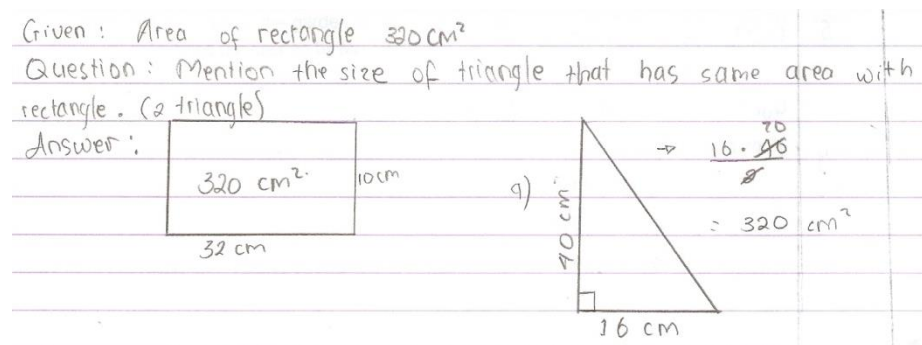 Given : Area of rectangle 320 cm²
Question : Mention the size of triangle that has same area with
rectangle. (2 triangle)
Answer :
320 cm².
10 cm
32 cm
a)
40 cm
16 cm
→ 16 · 40 20
2
= 320 cm²